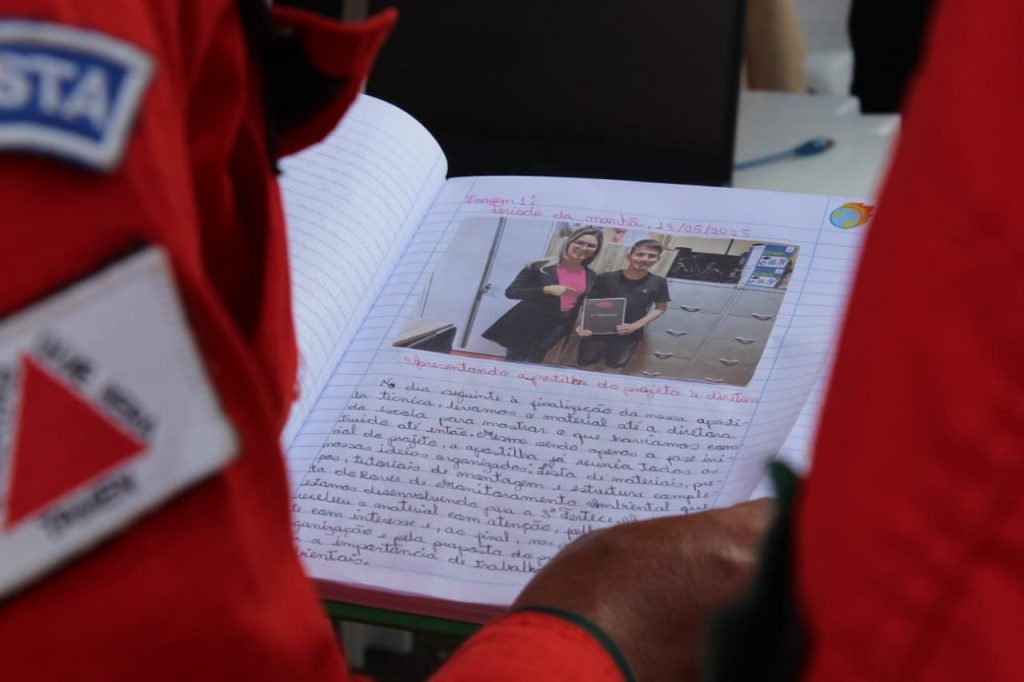 STA
QUE SERA
TAMEN
Imagem 1:
Período da manhã, 19/05/2025
Apresentando apostilha do projeto a diretora
No dia seguinte à finalização da nossa aposti-
la técnica, levamos o material até a diretora
da escola para mostrar o que havíamos cons
truído até então. Mesmo sendo apenas a fase ini
cial do projeto, a apostilha já reunia todas as
nossas ideias organizadas: lista de materiais, pre
ços, tutoriais de montagem e estrutura comple
ta do Rover de Monitoramento Ambiental que
estamos desenvolvendo para a 3ª Fertece.
recebeu o material com atenção,
te com interesse e, ao final, nos
ganização e pela proposta do
a importância de trabalh
bientais.